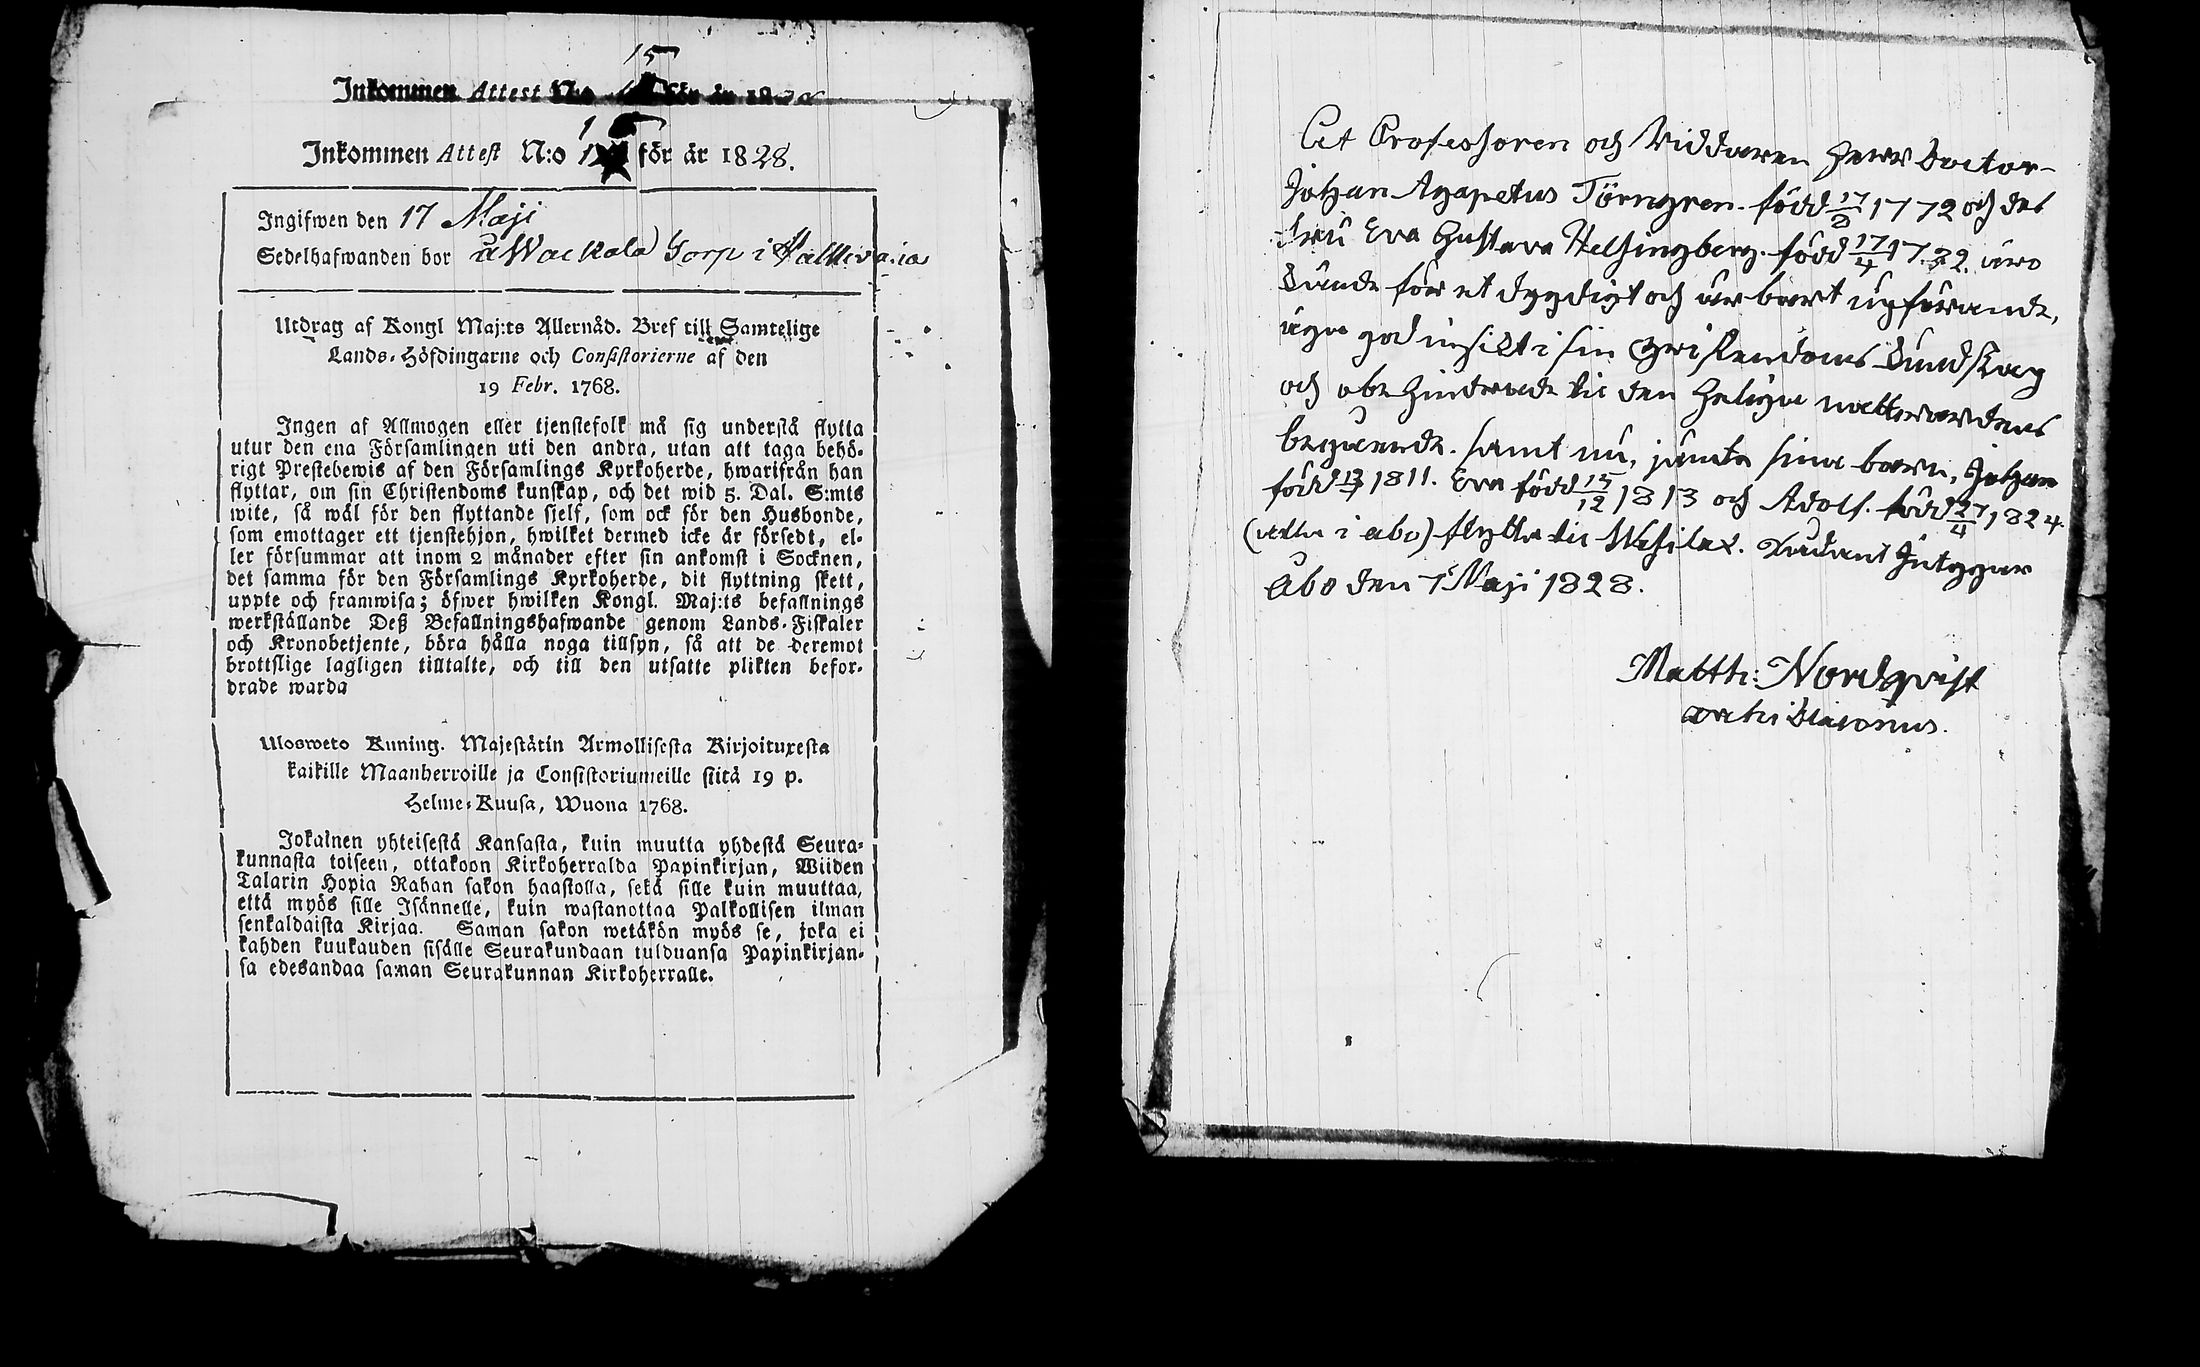 15
Inkommen Attest N:o för år 1828
15
Inkommen Attest N:o 1 för år 1828.
Ingifwen den 17 Maji
Sedelhafwanden bor å Wackala Torp i
Utdrag af Kongl Maj:ts Allernåd. Bref till Samtelige
Lands-Höfdingarne och Consistorierne af den
19 Febr. 1768.
Ingen af Allmogen eller tjenstefolk må sig understå flytta
utur den ena Församlingen uti den andra, utan att taga behö-
rigt Prestebewis af den Församlings Kyrkoherde, hwarifrån han
flyttar, om sin Christendoms kunskap, och det wid 5. Dal. S:mts
wite, så wäl för den flyttande sjelf, som ock för den Husbonde,
som emottager ett tjenstehjon, hwilket dermed icke är försedt, el-
ler försummar att inom 2 månader efter sin ankomst i Socknen,
det samma för den Församlings Kyrkoherde, dit flyttning skett,
uppte och framwisa; öfwer hwilken Kongl. Maj:ts befallnings
werkställande Deß Befallningshafwande genom Lands-Fiskaler
och Kronobetjente, böra hålla noga tillsyn, så att de deremot
brottslige lagligen tilltalte, och till den utsatte plikten befor-
drade warda
Ulosweto Kuning. Majestätin Armollisesta Kirjoituxesta
kaikille Maanherroille ja Consistoriumeille siitä 19 p.
Helme-Kuusa, Wuona 1768.
Jokainen yhteisestä Kansasta, kuin muutta yhdestä Seura-
kunnasta toiseen, ottakoon Kirkoherralda Papinkirjan, Wiiden
Talarin Hopia Rahan sakon haastolla, sekä sille kuin muuttaa,
että myös sille Isännelle, kuin wastanottaa Palkollisen ilman
senkaldaista Kirjaa. Saman sakon wetäkön myös se, joka ei
kahden kuukauden sisälle Seurakundaan tulduansa Papinkirjan-
sa edesandaa saman Seurakunnan Kirkoherralle.
At Professoren och Riddaren Herr Doctor
Johan Agapetus Törngren. född 17/2 1772 och des
fru Eva Gustava Helsingberg. född 17/4 1782. äro
kände för et dygdigt och ärbart upförande,
äga god insikt i sin Christendoms kundskap
och obehindrade til den Heliga nattvardens
begående. samt nu, jämte sina barn, Johan
född 13/7 1811. Eva född 15/12 1813 och Adolf. född 27/4 1824.
(alla i åbo) flytta til Wesilax. Sådant Intygar
Åbo den 7 Maji 1828.
Matth: Nordqvist
Archi Diaconus.